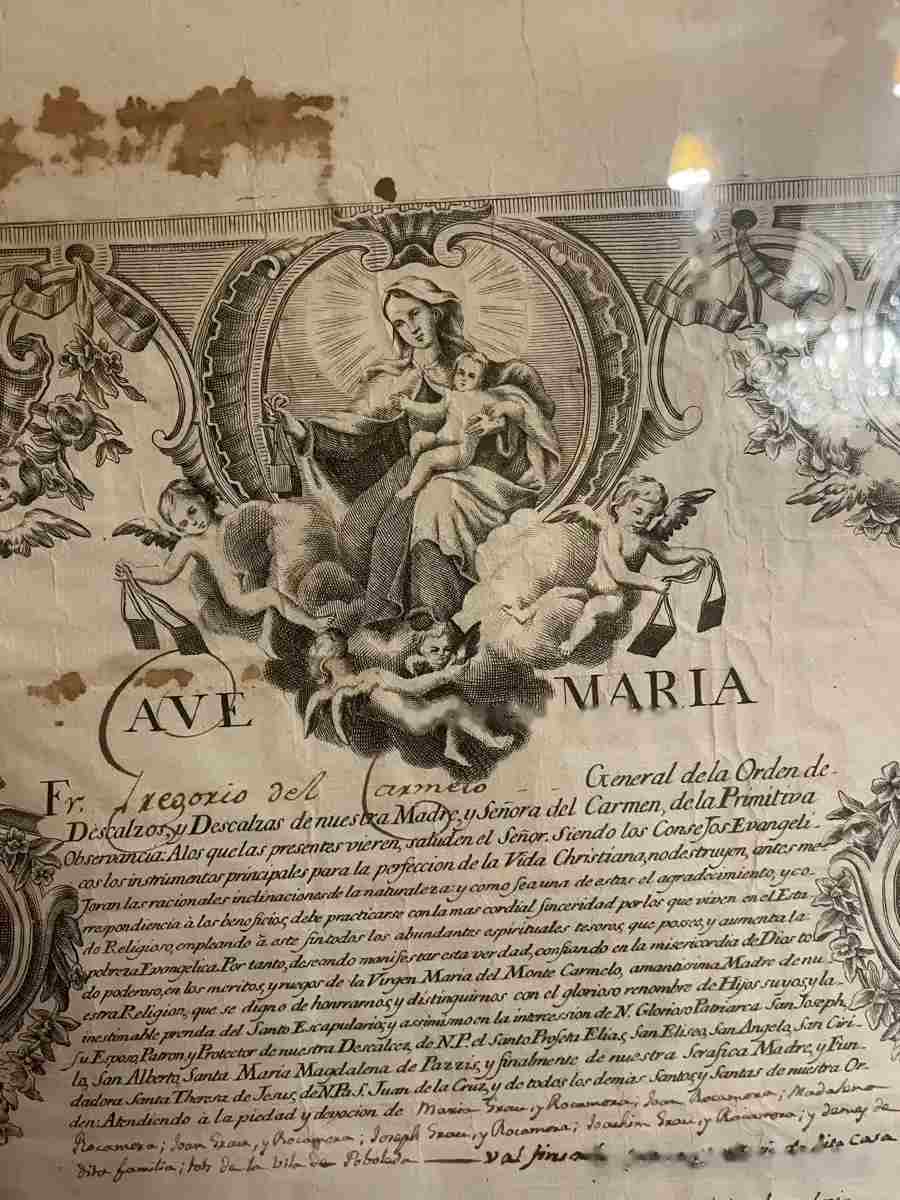 AVE MARIA
Fr. Gregorio del Carmelo General de la Orden de
Descalzos, y Descalzas de nuestra Madre, y Señora del Carmen, de la Primitiva
Observancia. A los que las presentes vieren, salud en el Señor. Siendo los Consejos Evangeli-
cos los instrumentos principales para la perfeccion de la Vida Christiana, no destruyen, antes me-
Joran las racionales inclinaciones de la naturaleza: y como sea una de estas el agradecimiento, y co-
rrespondiencia à los beneficios, debe practicarse con la mas cordial sinceridad por los que viven en el Esta-
do Religioso, empleando à este fin todos los abundantes espirituales tesoros, que posee, y aumenta la
pobreza Evangelica. Por tanto, deseando manifestar esta verdad, confiando en la misericordia de Dios to-
do poderoso, en los meritos, y ruegos de la Virgen Maria del Monte Carmelo, amantisima Madre de nu-
estra Religion, que se digno de honrrarnos, y distinguirnos con el glorioso renombre de Hijos suyos, y la
inestimable prenda del Santo Escapulario; y assimismo en la intercession de N. Glorioso Patriarca San Joseph,
su Esposo, Patron, y Protector de nuestra Descalcez, de N.P. el Santo Profeta Elias, San Eliseo, San Angelo, San Ciri-
lo, San Alberto, Santa Maria Magdalena de Pazzis, y finalmente de nuestra Serafica Madre, y Fun-
dadora Santa Theresa de Jesus, de N.P. S. Juan de la Cruz, y de todos los demas Santos, y Santas de nuestra Or-
den: Atendiendo à la piedad y devocion de Maria Grau, y Rocamora; Joan Rocamora; Madalena
Rocamora; Joan Grau, y Rocamora; Joseph Grau, y Rocamora; Joachim Grau, y Rocamora; y demes de
dita familia; tots de la Vila de Poboleda val